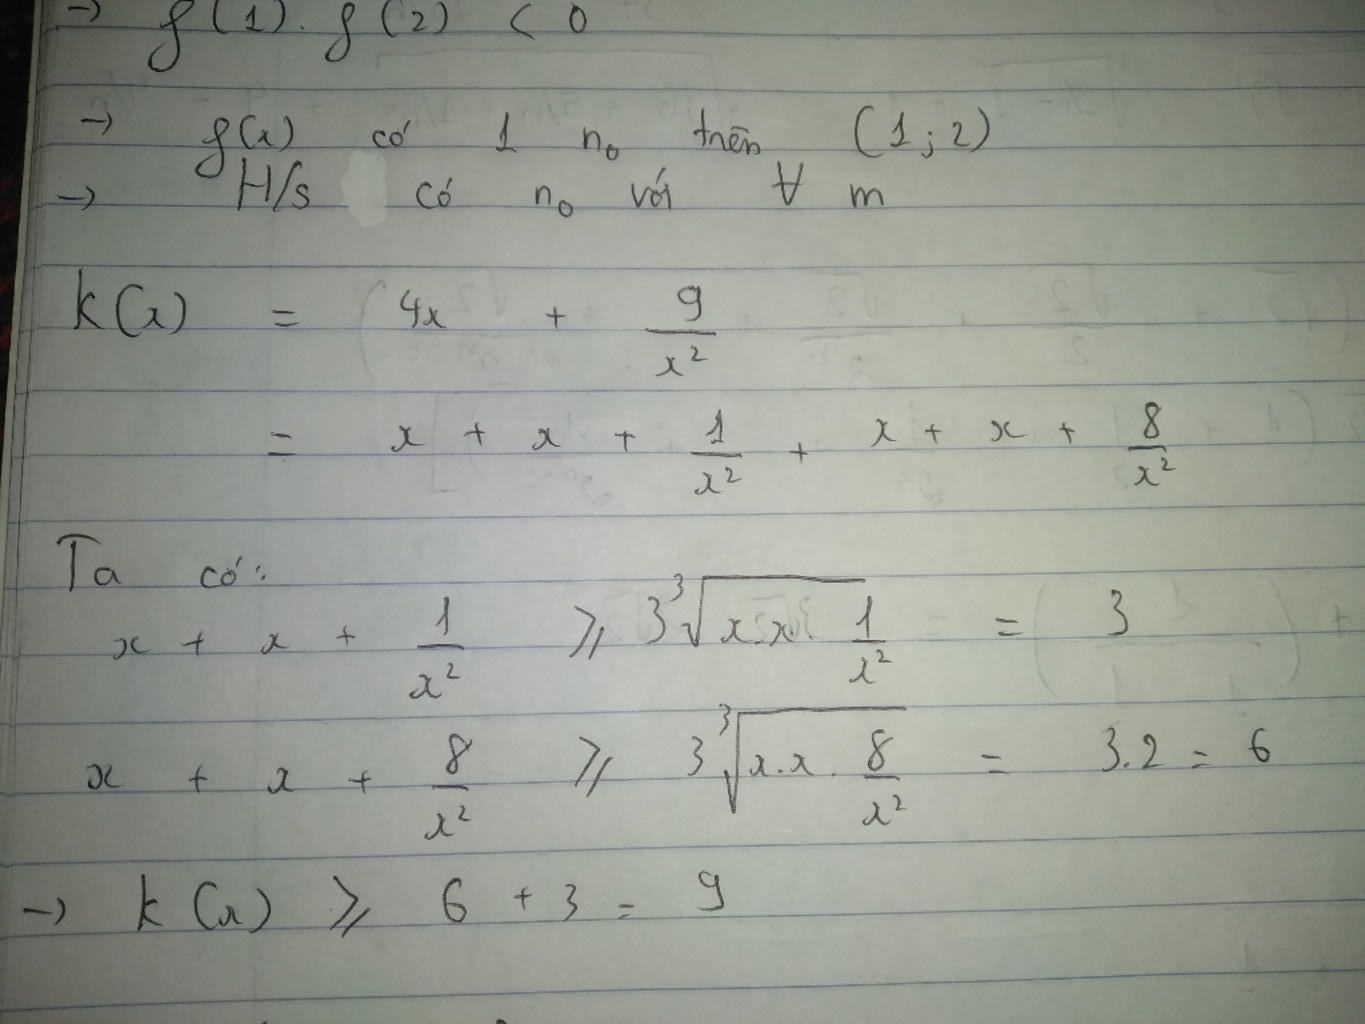 → f(1). f(2) < 0
→ f(x) có 1 n₀ trên (1; 2)
→ H/s có n₀ với ∀ m
k(x) = 4x + 9/x²
= x + x + 1/x² + x + x + 8/x²
Ta có:
x + x + 1/x² ⩾ 3∛(x.x 1/x²) = 3
x + x + 8/x² ⩾ 3∛(x.x. 8/x²) = 3.2 = 6
→ k(x) ⩾ 6 + 3 = 9